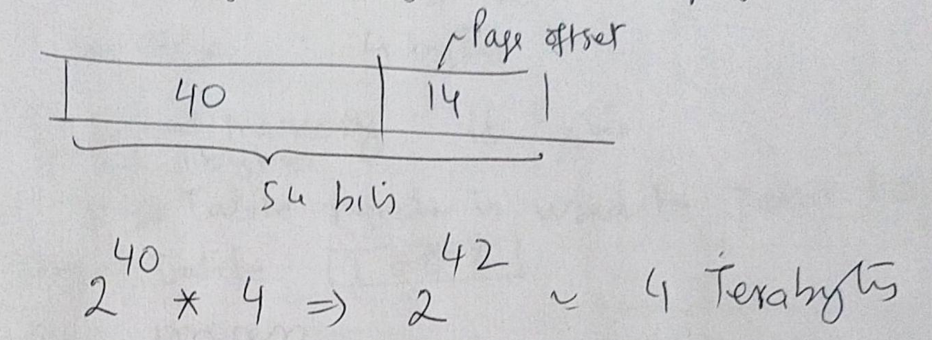 Page offset
40 14
54 bits
2^40 * 4 => 2^42 ~ 4 Terabytes